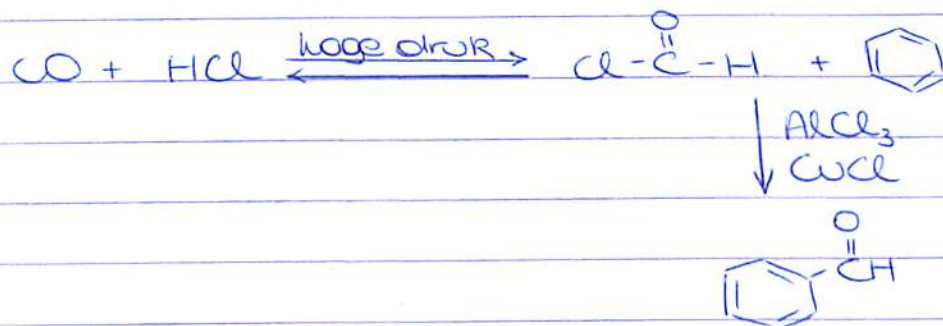 O
CO + HCl hoge druk Cl-C-H +
AlCl3
CuCl
O
CH